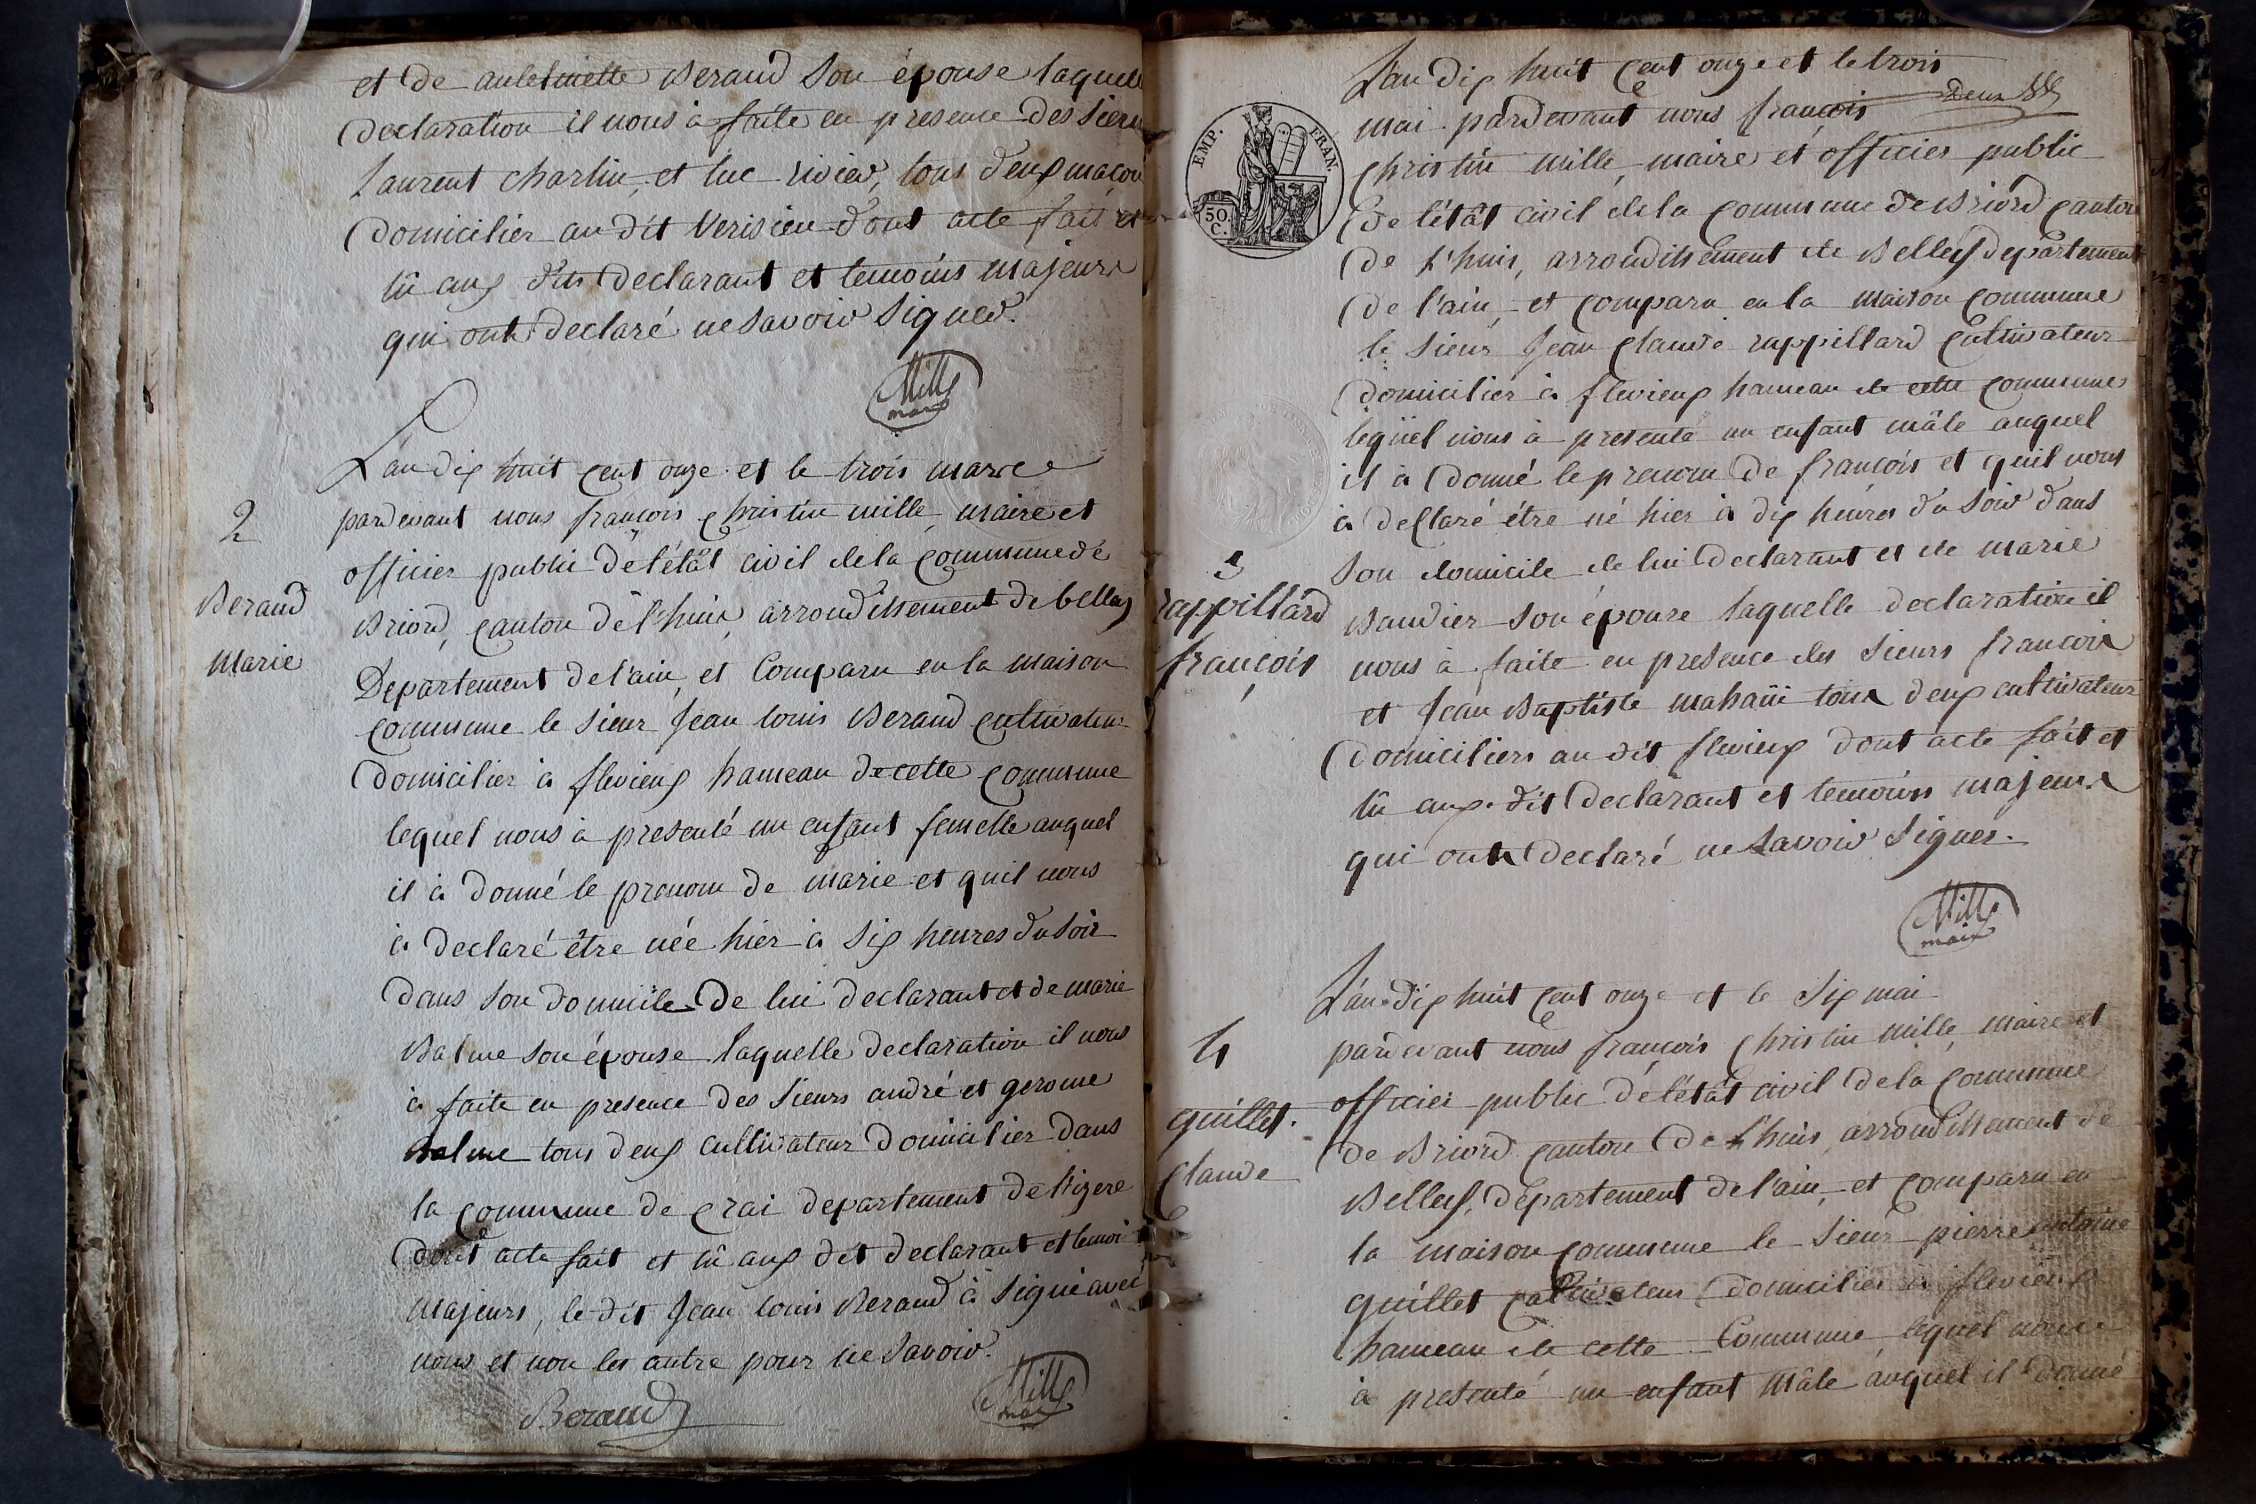 et de antelmette Beraud Son épouse laquel
declaration il nous à faite en presence des Sieur
Laurent charlin, et luc rivier, tous deux maçon
domicilier au dit Verisieu dont acte fait et
lû aux dits declarant et temoins majeurs
qui ont declaré ne Savoir Signer.
Mille
maire
L'an dix huit Cent onze et le trois mars
2
pardevant nous françois Christin mille, maire et
officier public de l'état civil de la commune de
Beraud
Marie
Briord, canton de l'huis, arrondissement de belley
Departement de l'ain, et Comparu en la maison
commune le Sieur Jean louis Beraud cultivateur
domicilier à flevieux hameau de cette commune
lequel nous à presenté un enfant femelle auquel
il à donné le prenom de marie et quil nous
à declaré être née hier à Six heures du Soir
dans Son domicile De lui declarant et de marie
Balme Son épouse laquelle declaration il nous
à faite en presence des Sieurs andré et gerome
balme tous deux cultivateur domicilier dans
la commune de crai departement de l'izere
dont acte fait et lû aux dit declarant et temoi
majeurs, le dit Jean louis Beraud à Signé avec
nous et non les autre pour ne Savoir.
Beraud
Mille
maire
L'an dix huit Cent onze et le trois
deux
mai pardevant nous françois
EMP. FRAN.
50.
C.
Christin mille, maire et officier public
de l'état civil de la commune de Briord canton
de l'huis, arrondissement de Belley departement
de l'ain, et comparu en la maison commune
le Sieur Jean claude rappillard cultivateur
domicilier à flevieux hameau de cette commune
lequel nous à presenté un enfant mâle auquel
il à donné le prenom de françois et quil nous
à declaré être né hier à dix heures du Soir dans
3
rappillard
françois
Son domicile de lui declarant et de marie
Baudier Son épouse laquelle declaration il
nous à faite en presence des Sieurs françois
et Jean Baptiste mahaüi tous deux cultivateur
domiciliers au dit flevieux dont acte fait et
lû aux dit declarant et temoins majeurs
qui ont declaré ne Savoir Signer.
Mille
maire
L'an dix huit Cent onze et le Six mai
4
pardevant nous françois Christin mille, maire et
guillet.
Claude
officier public de l'état civil de la commune
de Briord canton de l'huis, arrondissement de
Belley, departement de l'ain, et comparu en
la maison commune le Sieur pierre antoine
guillet cultivateur domicilier à flevieux
hameau de cette Commune lequel nous
à presenté un enfant mâle auquel il donné